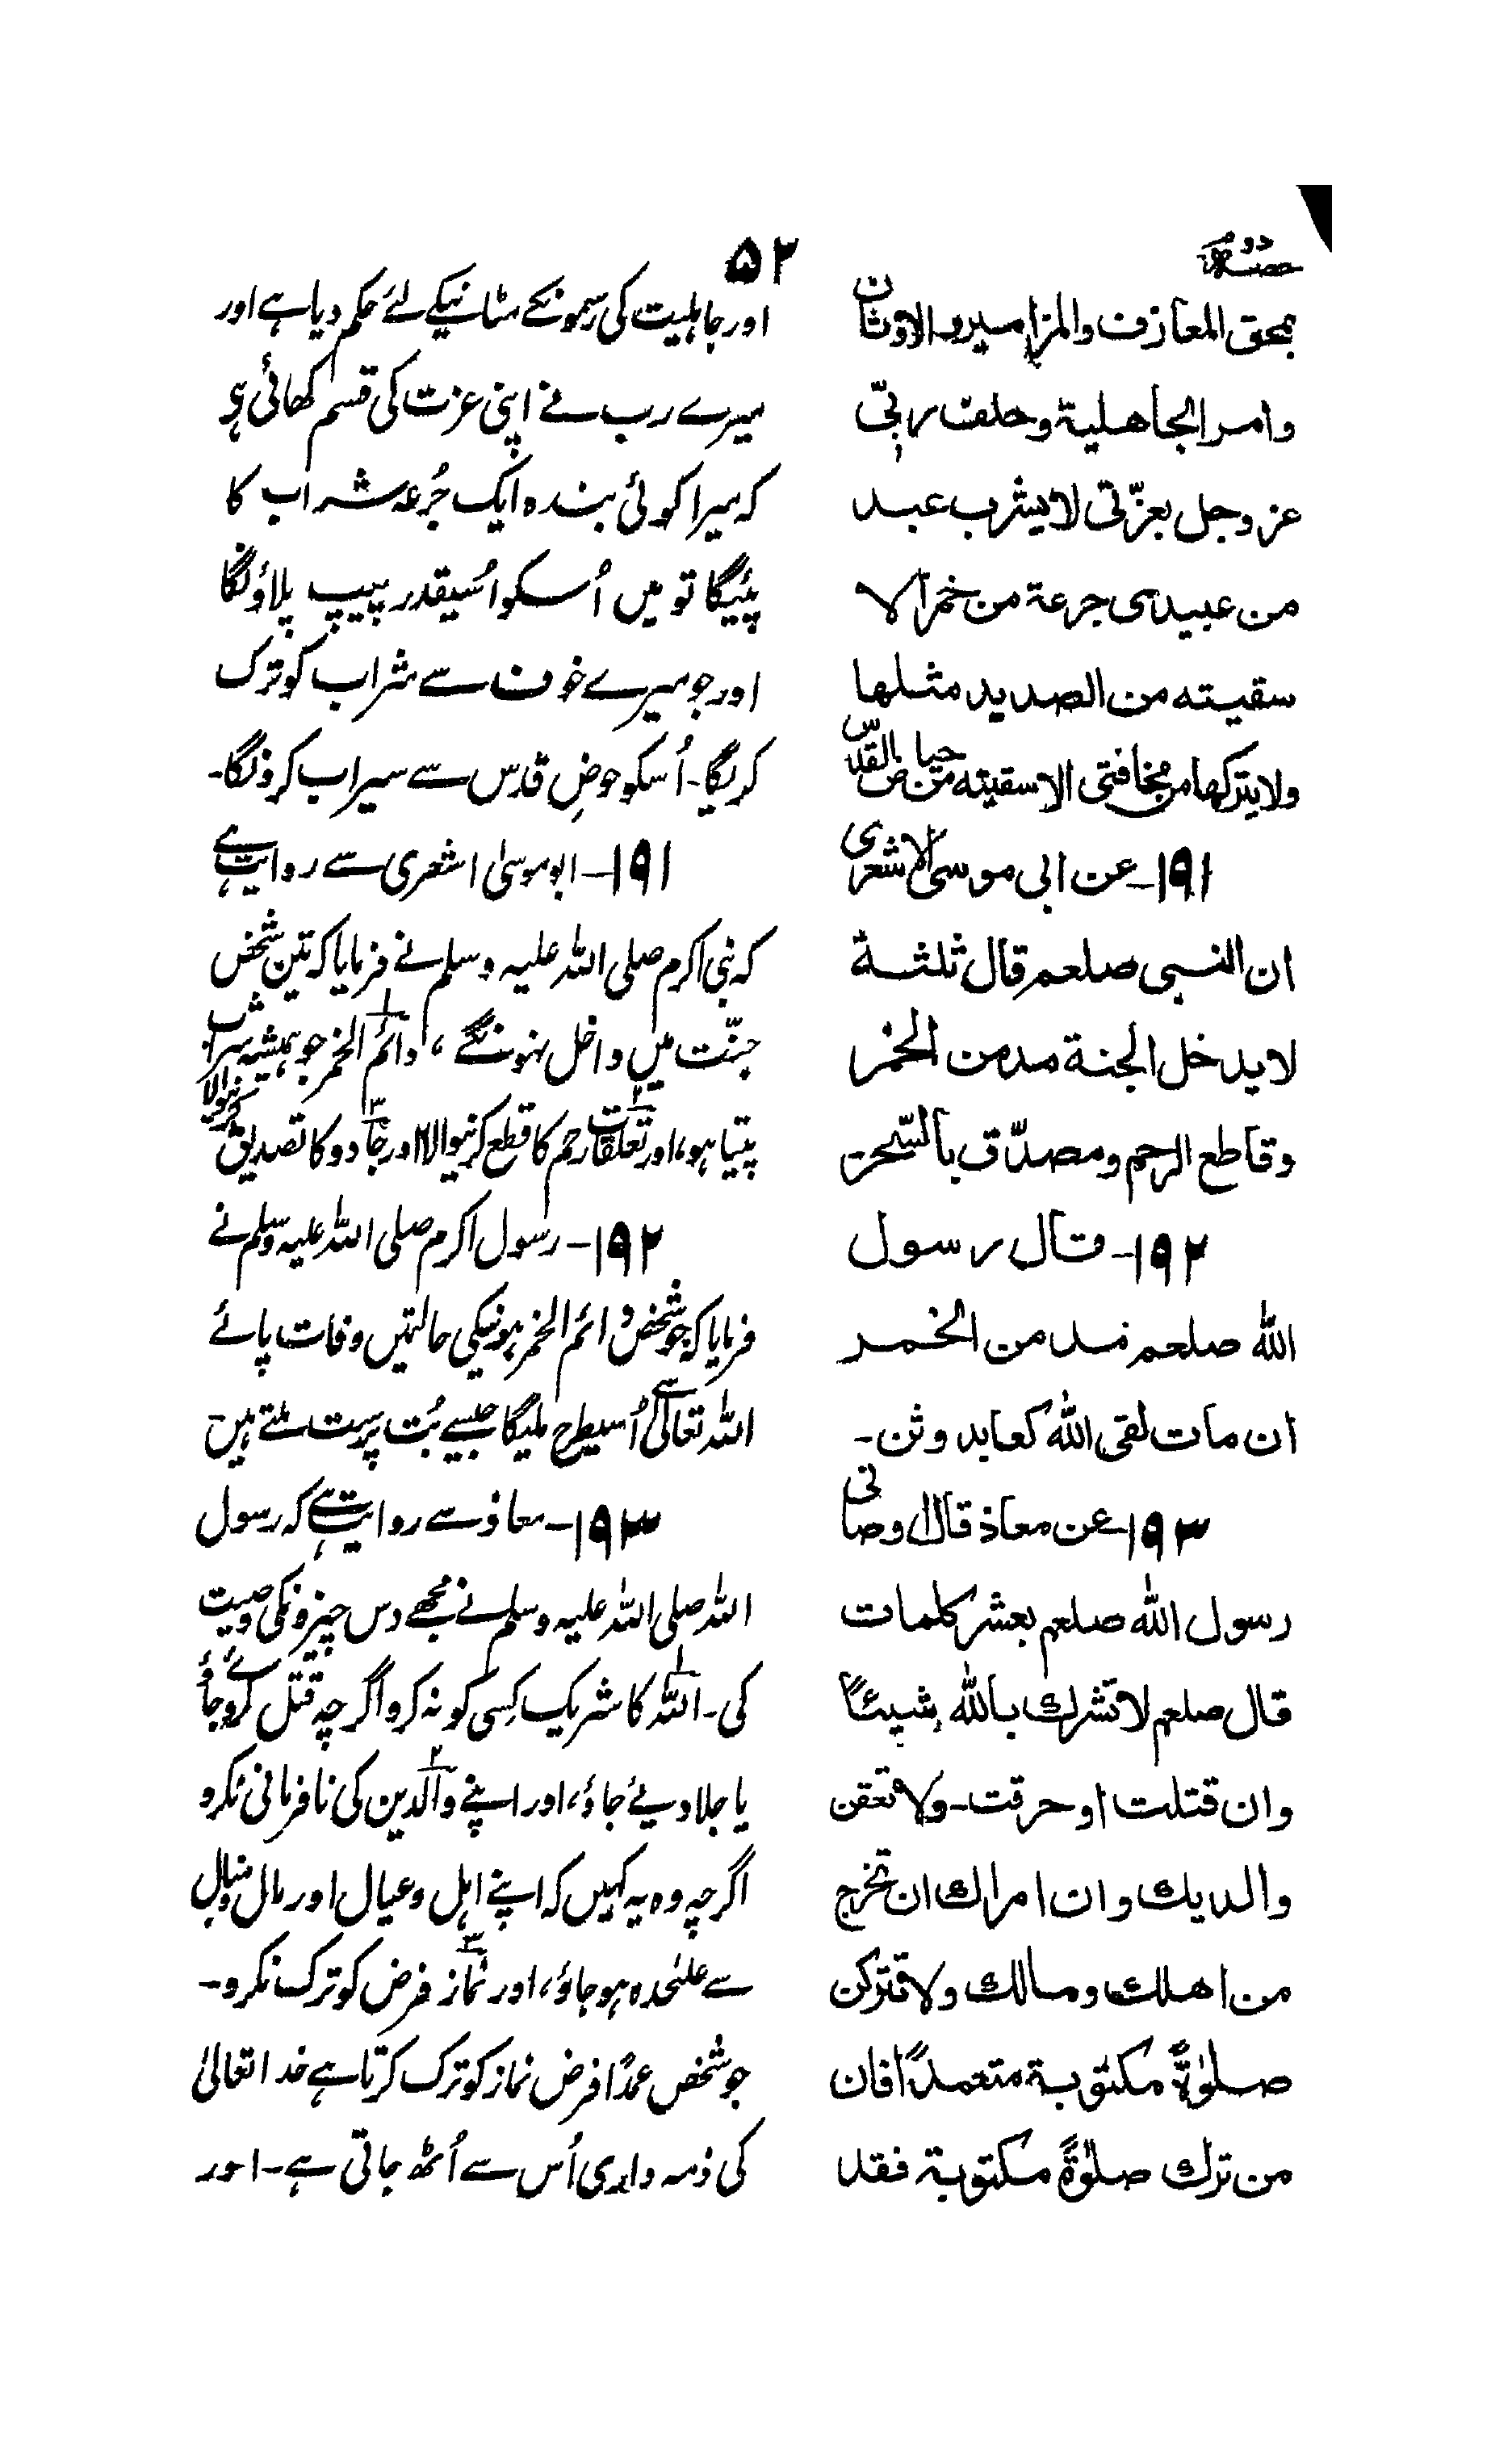 حصہ دوم
۵۲
بمحق المعازف والمزامیر والاوثان
وامر الجاهلیة وحلف ربّی
عز وجل بعزّتی لا یشرب عبد
من عبیدی جرعة من خمر الا
سقیته من الصدید مثلها
ولا یترکها من مخافتی الا سقیته من حیاض القدس
۱۹۱۔ عن ابی موسی الاشعری
ان النبی صلعم قال ثلثة
لا یدخل الجنة مدمن الخمر
وقاطع الرحم ومصدّق بالسّحر
۱۹۲۔ قال رسول
الله صلعم مدمن الخمر
ان مات لقی الله کعابد وثن۔
۱۹۳۔ عن معاذ قال اوصانی
رسول الله صلعم بعشر کلمات
قال صلعم لا تشرك بالله شیئاً
وان قتلت او حرقت۔ ولا تعقن
والدیك وان امراك ان تخرج
من اهلك ومالك ولا تترکن
صلوٰةً مکتوبة متعمداً فان
من ترك صلوٰةً مکتوبة فقد
اور جاہلیت کی رسموںکے مٹانیکے لئے حکم دیا ہے اور
میرے رب نے اپنی عزت کی قسم کھائی ہی
کہ میرا کوئی بندہ ایک جُرعہ شراب کا
پئیگا تو میں اُسکو اُسیقدر پیپ پلاؤنگا
اور جو میرے خوف سے شراب کو ترک
کریگا۔ اُسکو حوضِ قدس سے سیراب کرونگا۔
۱۹۱۔ ابو موسیٰ اشعری سے روایت ہے
کہ نبی اکرم صلی اللہ علیہ وسلم نے فرمایا کہ تین شخص
جنّت میں داخل نہونگے، ۱ دائم الخمر جو ہمیشہ شراب
پیتا ہو، اور ۲ تعلقات رحم کا قطع کرنیوالا اور ۳ جادو کا تصدیق کرنیوالا
۱۹۲۔ رسول اکرم صلی اللہ علیہ وسلم نے
فرمایا کہ جو شخص دائم الخمر ہونیکی حالتمیں وفات پائے
اللہ تعالیٰ سے اُسیطرح ملیگا جیسے بُت پرست ملتے ہیں
۱۹۳۔ معاذ سے روایت ہے کہ رسول
اللہ صلی اللہ علیہ وسلم نے مجھے دس چیزونکی وصیت
کی۔ ۱ اللہ کا شریک کِسی کو نہ کرو اگرچہ قتل کردئے جاؤ
یا جلا دیئے جاؤ، اور اپنے ۲ والدین کی نافرمانی نکرو
اگرچہ وہ یہ کہیں کہ اپنے اہل و عیال اور مال و منال
سے علیٰحدہ ہو جاؤ، اور ۳ نماز فرض کو ترک نکرو۔
جو شخص عمدًا فرض نماز کو ترک کرتا ہے خدا تعالیٰ
کی ذمہ داری اُس سے اُٹھ جاتی ہے۔ اور